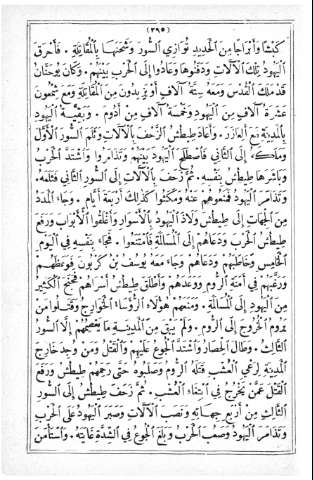 (٣٩٥)
كبشًا وأبراجًا من الحديد توازي السور وشحنها بالمقاتلة . فأحرق
اليهود تلك الآلات ودفنوها وعادوا إلى الحرب بينهم . وكان يوحنان
قد ملك القدس ومعه ستة آلاف أو يزيدون من المقاتلة ومع شمعون
عشرة آلاف من اليهود وخمسة آلاف من أدوم . وبقية اليهود
بالمدينة مع العازر . وأعاد طيطش الزحف بالآلات وثلم السور الأول
وملكه إلى الثاني فاصطلح اليهود بينهم وتذامروا واشتد الحرب
وباشرها طيطش بنفسه . ثم زحف بالآلات إلى السور الثاني فثلمه .
وتذامر اليهود فمنعوهم عنه ومكثوا كذلك أربعة أيام . وجاء المدد
من الجهات إلى طيطش ولاذ اليهود بالأسوار وأغلقوا الأبواب ورفع
طيطش الحرب ودعاهم إلى المسالمة فامتنعوا . فجاء بنفسه في اليوم
الخامس وخاطبهم ودعاهم وجاء معه يوسف بن كريون فوعظهم
ورغبهم في أمنة الروم ووعدهم وأطلق طيطش أسراهم فجنح الكثير
من اليهود إلى المسالمة . ومنعهم هؤلاء الرؤساء الخوارج وقتلوا من
يروم الخروج إلى الروم . ولم يبق من المدينة ما يعصمهم إلا السور
الثالث . وطال الحصار واشتد الجوع عليهم والقتل ومن وجد خارج
المدينة لرعي العشب قتله الروم وصلبوه حتى رحمهم طيطش ورفع
القتل عمن يخرج في ابتغاء العشب . ثم زحف طيطش إلى السور
الثالث من أربع جهاته ونصب الآلات وصبر اليهود على الحرب
وتذامر اليهود وصعب الحرب وبلغ الجوع في الشدة غايته . واستأمن